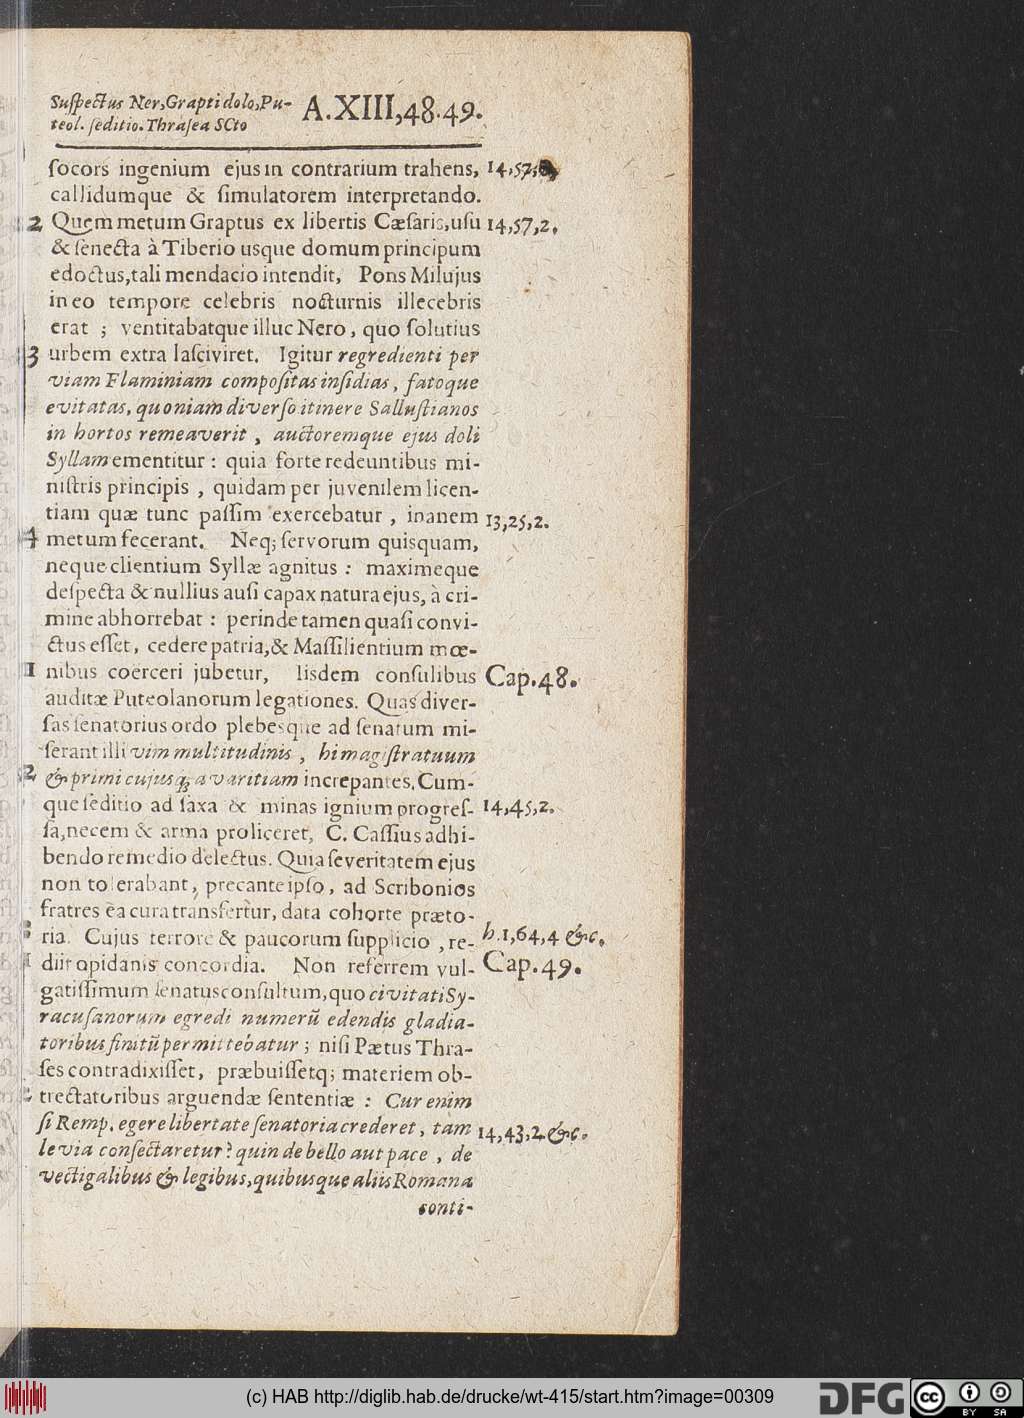 Suſpectus Ner, Grapti dolo, Pu-
teol. ſeditio. Thraſea SCto
A. XIII, 48. 49.
ſocors ingenium ejus in contrarium trahens,
14,57,
callidumque & ſimulatorem interpretando.
2 Quem metum Graptus ex libertis Cæſaris, uſu
14,57,2.
& ſenecta à Tiberio usque domum principum
edoctus, tali mendacio intendit, Pons Milujus
in eo tempore celebris nocturnis illecebris
erat ; ventitabatque illuc Nero, quo ſolutius
3 urbem extra laſciviret. Igitur regredienti per
viam Flaminiam compoſitas inſidias, fatoque
evitatas, quoniam diverſo itinere Salluſtianos
in hortos remeaverit, auctoremque ejus doli
Syllam ementitur : quia forte redeuntibus mi-
niſtris principis, quidam per juvenilem licen-
tiam quæ tunc paſſim exercebatur, inanem
13,25,2.
4 metum fecerant. Neq; ſervorum quisquam,
neque clientium Syllæ agnitus : maximeque
deſpecta & nullius auſi capax natura ejus, à cri-
mine abhorrebat : perinde tamen quaſi convi-
ctus eſſet, cedere patria, & Maſſilientium mœ-
1 nibus coerceri jubetur, Iisdem conſulibus
Cap. 48.
auditæ Puteolanorum legationes. Quas diver-
ſas ſenatorius ordo plebesque ad ſenatum mi-
ſerant illi vim multitudinis, hi magiſtratuum
2 & primi cujusq; avaritiam increpantes. Cum-
que ſeditio ad ſaxa & minas ignium progreſ-
14,45,2.
ſa, necem & arma proliceret, C. Caſſius adhi-
bendo remedio delectus. Quia ſeveritatem ejus
non tolerabant, precante ipſo, ad Scribonios
fratres ea cura transfertur, data cohorte præto-
3 ria. Cujus terrore & paucorum ſupplicio, re-
h. 1,64,4 &c.
1 diit opidanis concordia. Non referrem vul-
Cap. 49.
gatiſſimum ſenatusconſultum, quo civitati Sy-
racuſanorum egredi numerū edendis gladia-
toribus finitū permittebatur ; niſi Pætus Thra-
ſes contradixiſſet, præbuiſſetq; materiem ob-
2 trectatoribus arguendæ ſententiæ : Cur enim
ſi Remp. egere libertate ſenatoria crederet, tam
14,43,2 &c.
levia conſectaretur? quin de bello aut pace, de
vectigalibus & legibus, quibusque aliis Romana
conti-
(c) HAB http://diglib.hab.de/drucke/wt-415/start.htm?image=00309
DFG
cc BY SA